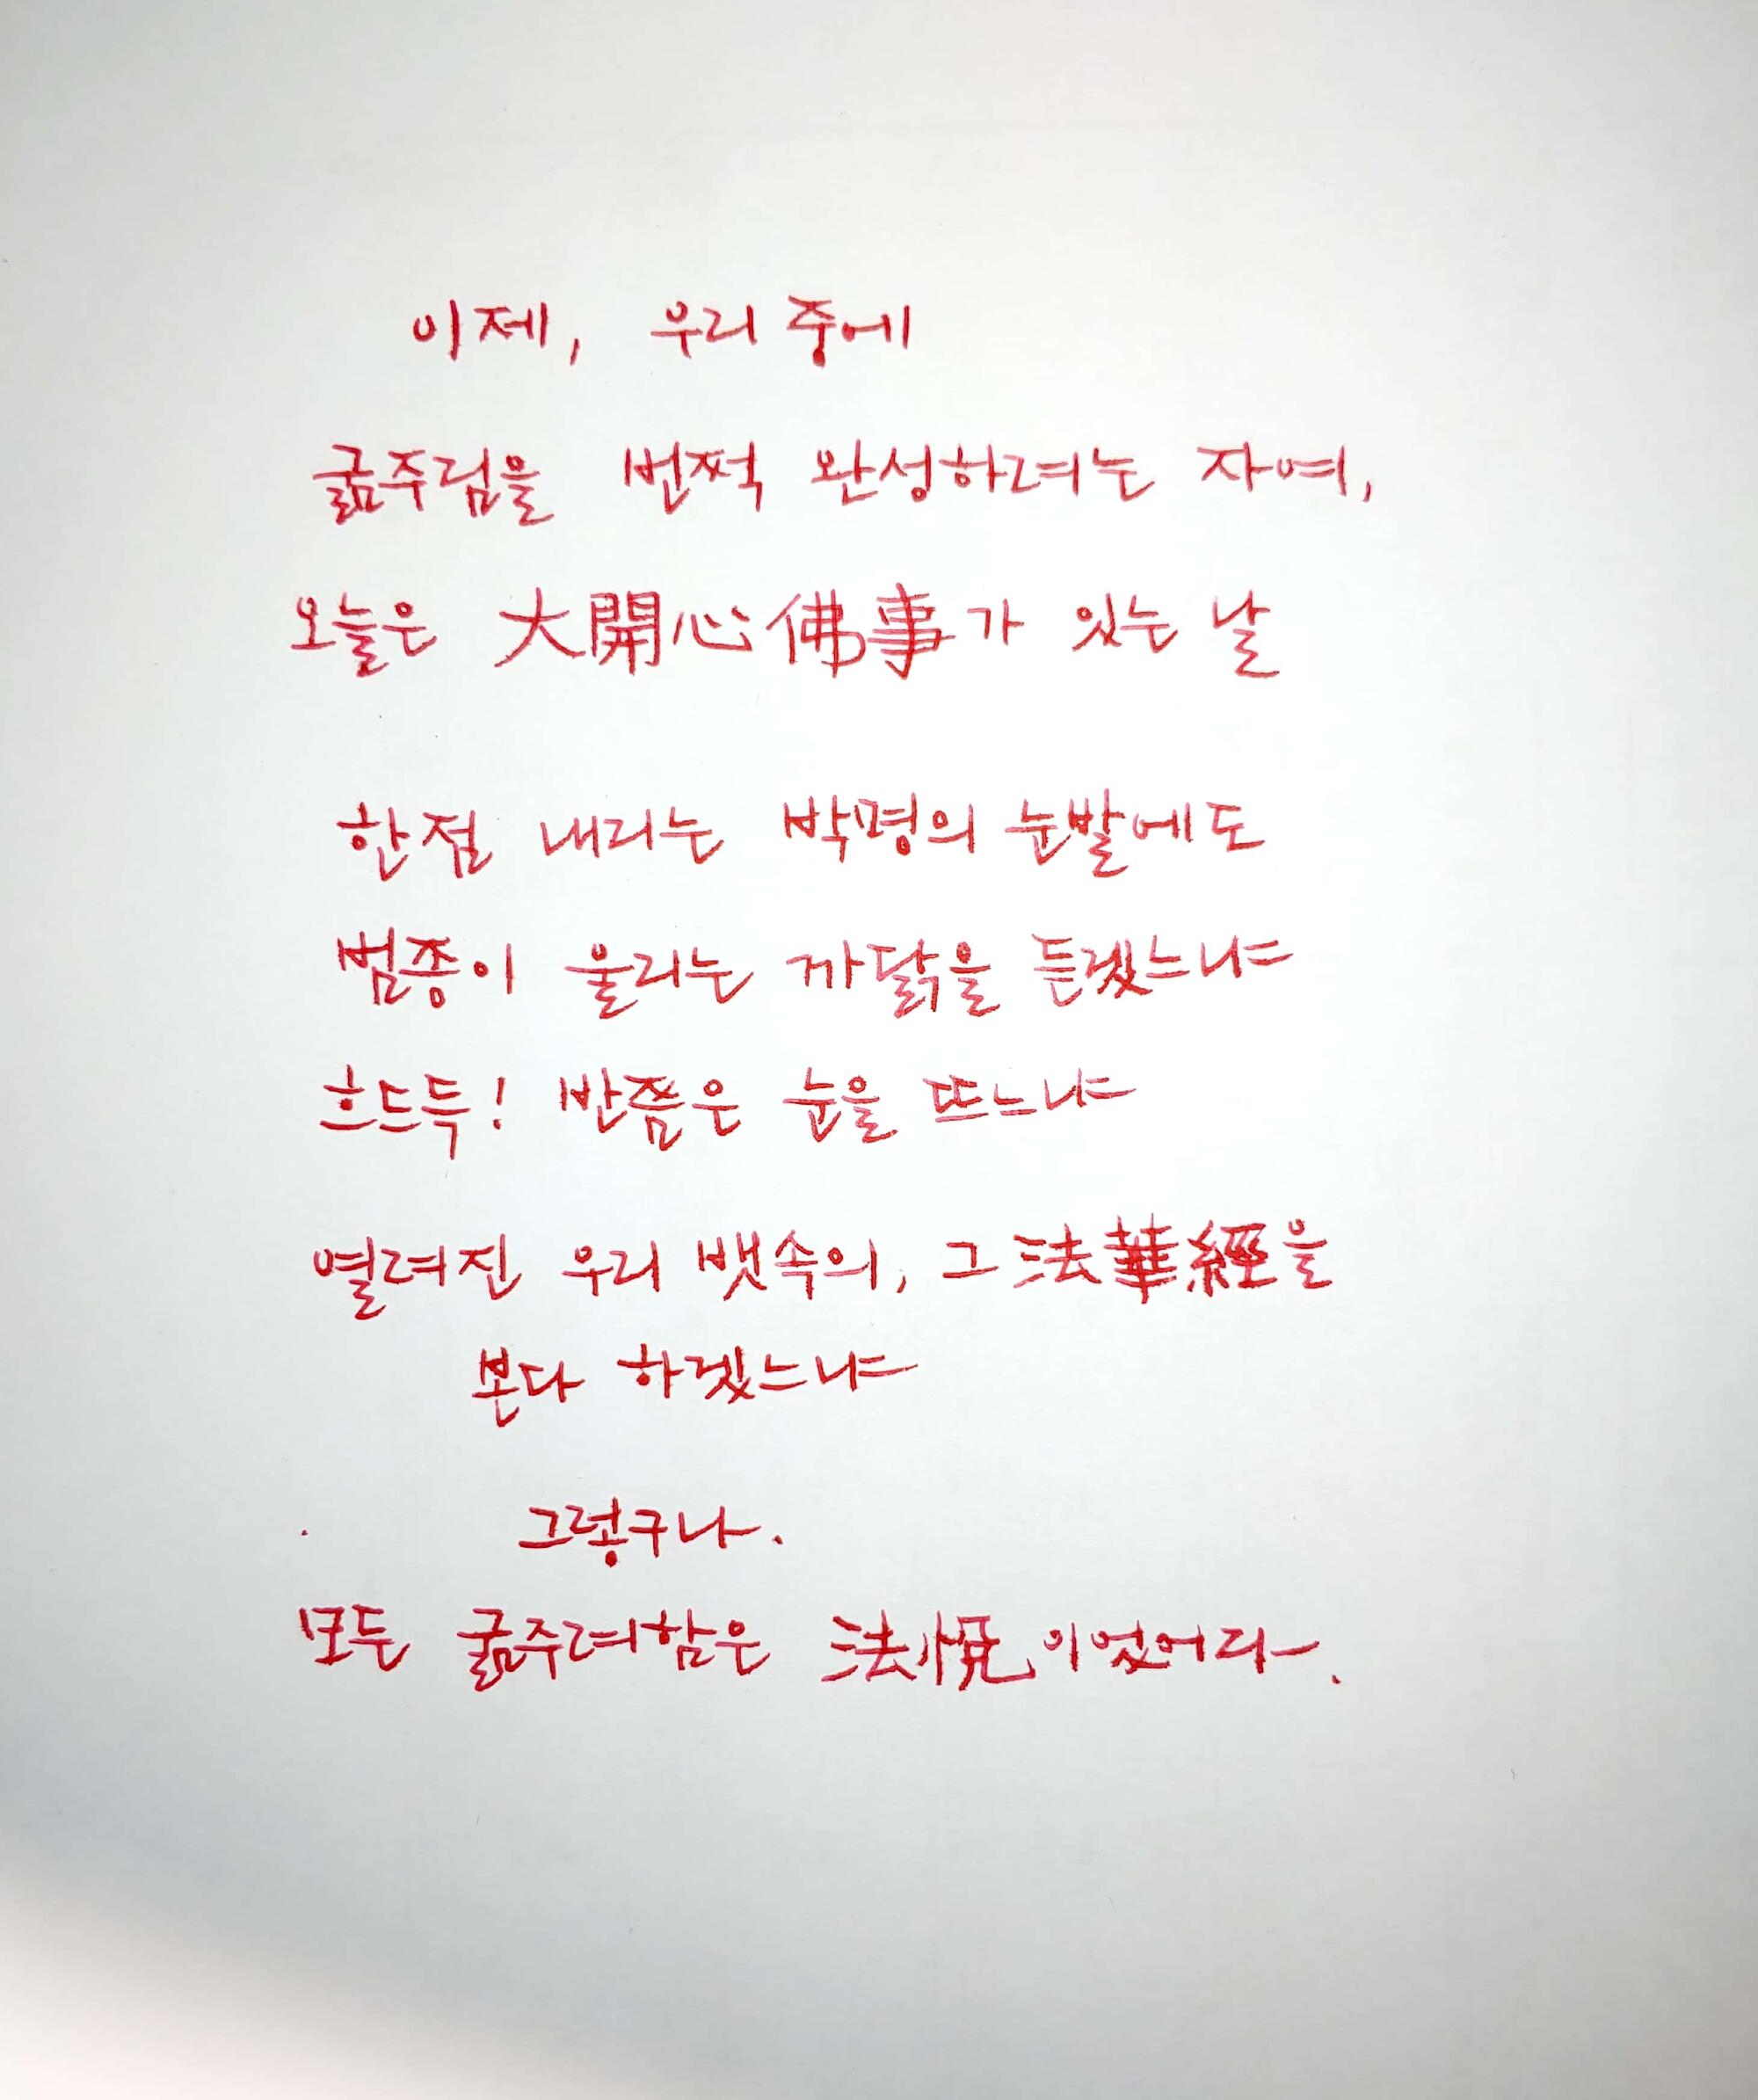 이제, 우리 중에
굶주림을 번쩍 완성하려는 자여,
오늘은 大開心佛事가 있는 날
한점 내리는 박명의 눈발에도
범종이 울리는 까닭을 듣겠느냐
흐드득! 반쯤은 눈을 뜨느냐
열려진 우리 뱃속의, 그 法華經을
본다 하겠느냐
그렇구나.
모든 굶주려함은 法悅이었어라.